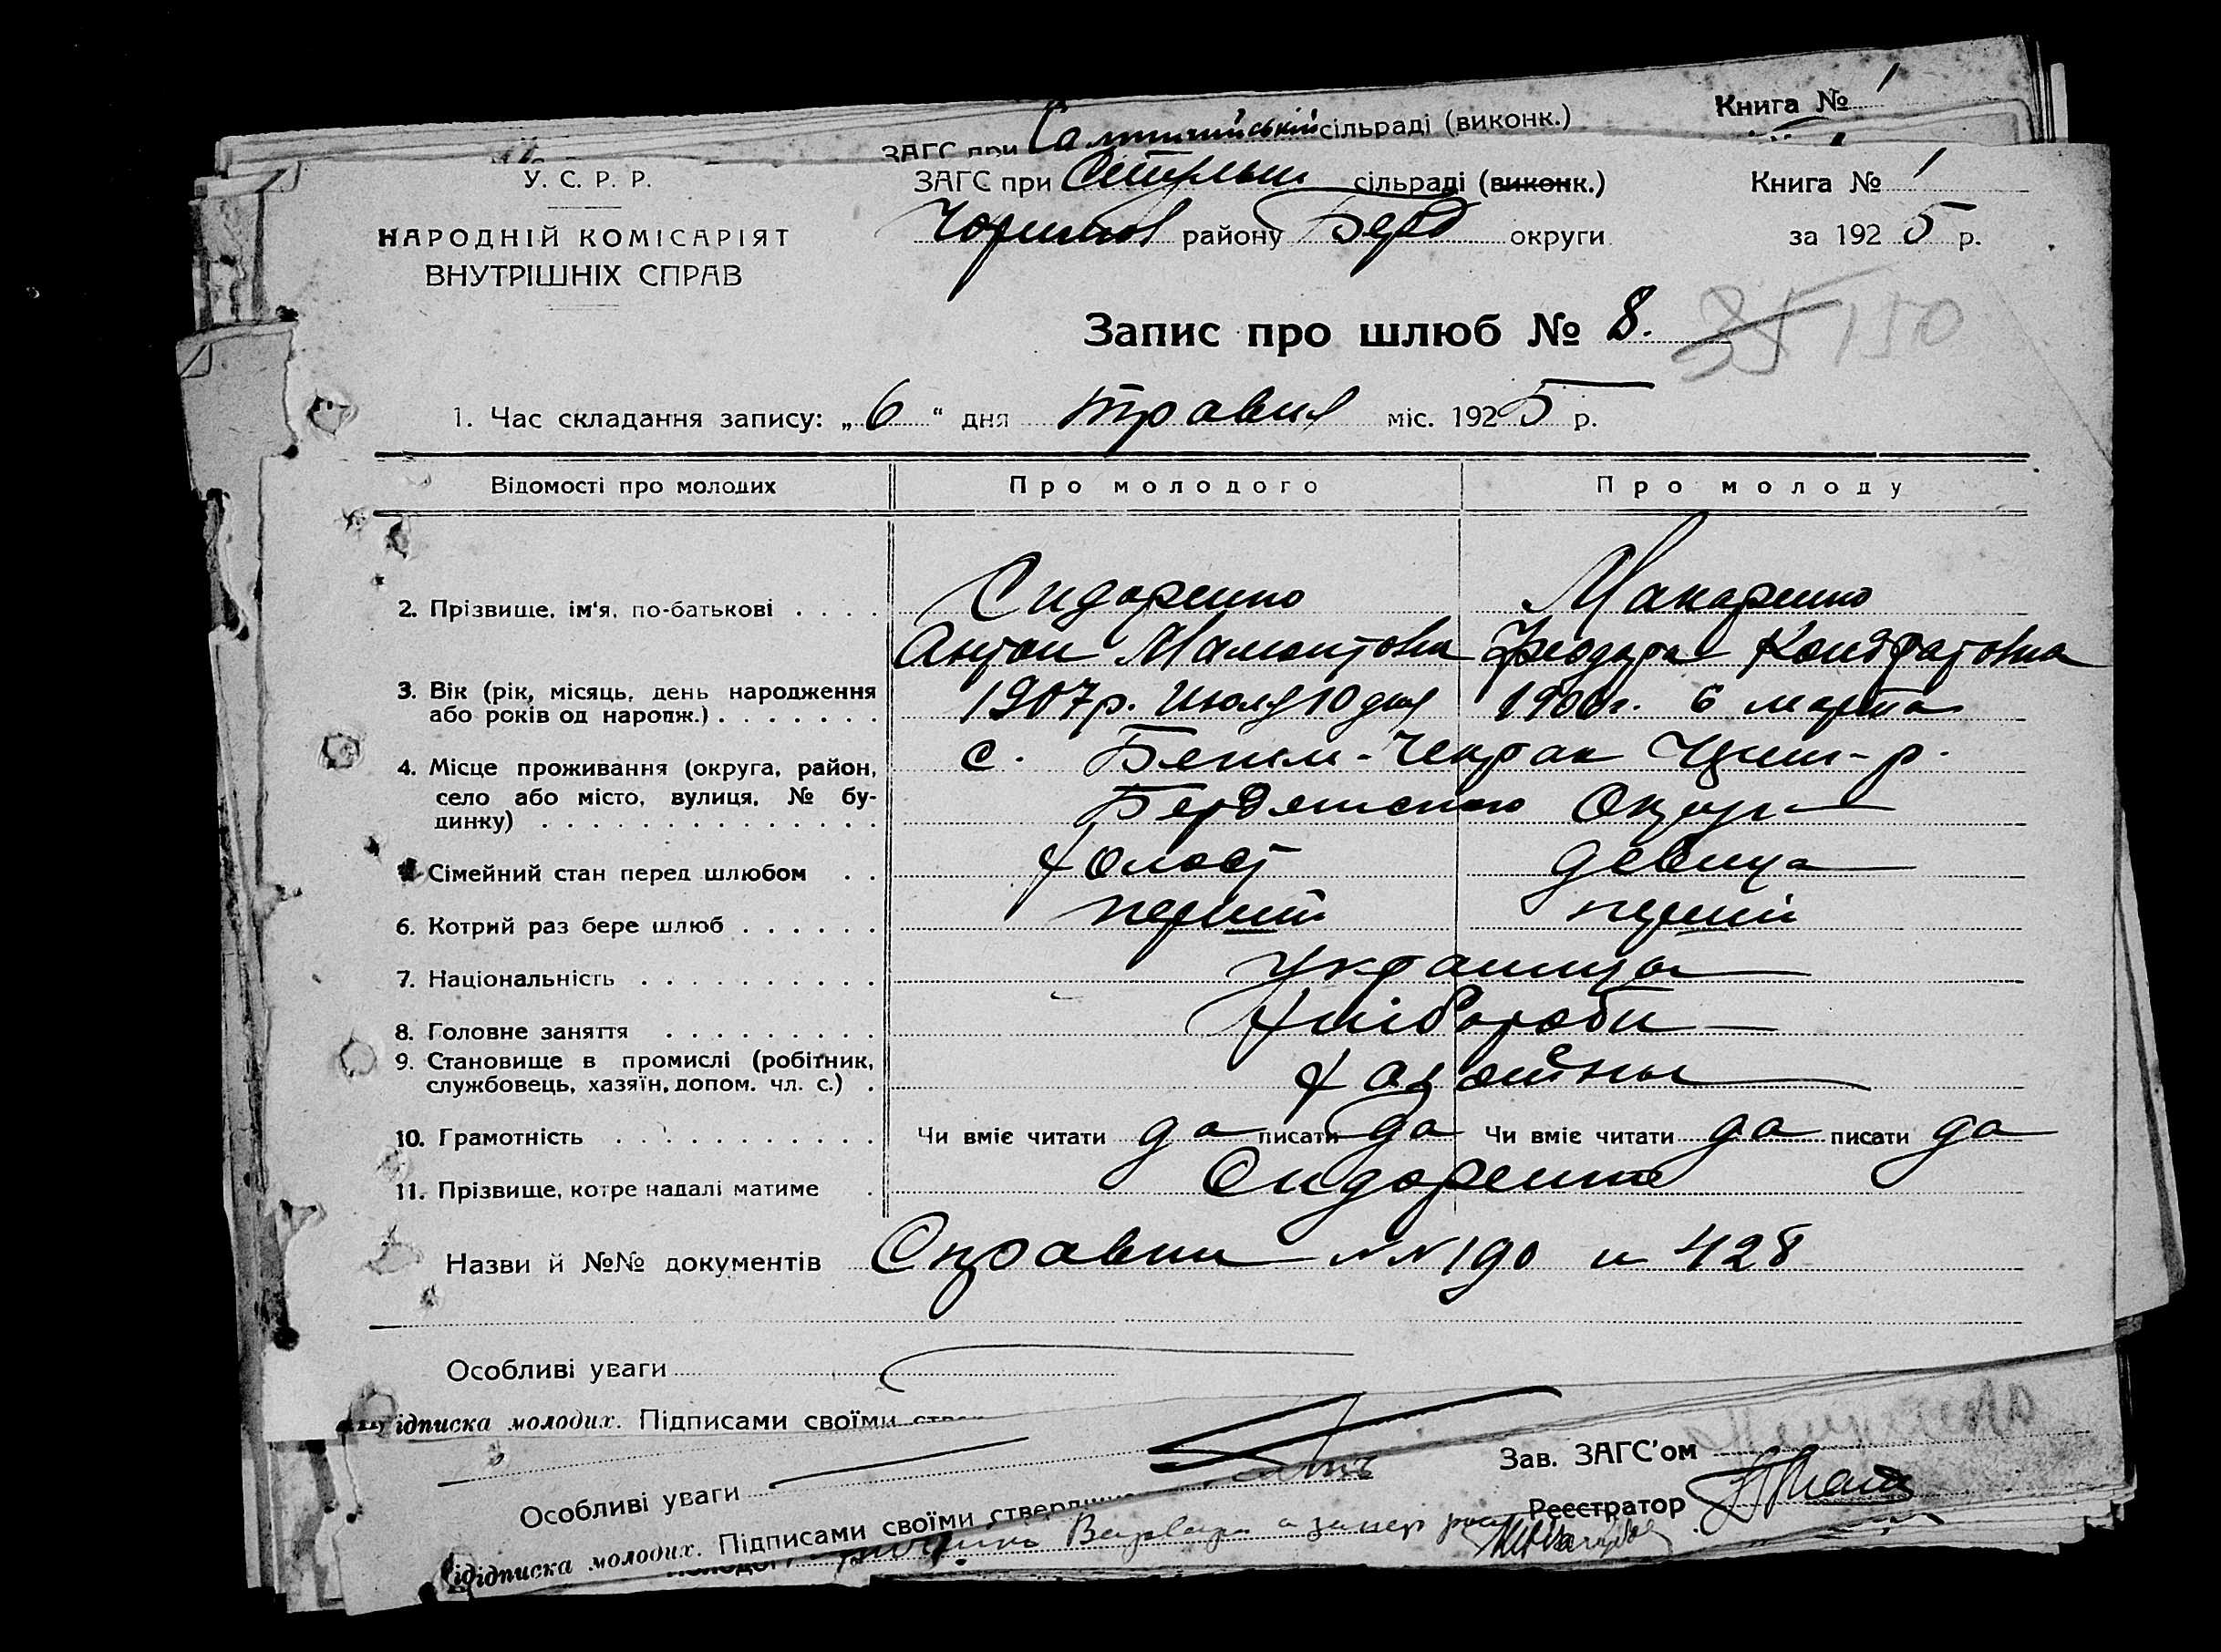 ЗАГС при сільраді (виконк.) Книга № 1
У. С. Р. Р.
ЗАГС при сільраді (виконк.) Книга № 1
НАРОДНІЙ КОМІСАРІЯТ
ВНУТРІШНІХ СПРАВ
району Берд округи за 1925 р.
Запис про шлюб № 8. 35 150
1. Час складання запису: „6“ дня травня міс. 1925 р.
Відомості про молодих Про молодого Про молоду
2. Прізвище, ім'я, по-батькові . . . . Сидоренко Макаренко
Антон Мамонтович Феодора Кондратовна
3. Вік (рік, місяць, день народження
або років од народж.) . . . . . . . 1907 р. Июля 10 дня 1906 г. 6 марта
4. Місце проживання (округа, район,
село або місто, вулиця, № бу-
динку) . . . . . . . . . . . . . .
с. Беким-Чекрак р.
Бердянского Округа
Сімейний стан перед шлюбом . . Холост девица
6. Котрий раз бере шлюб . . . . . . перший перший
7. Національність . . . . . . . . . . Украинцы
8. Головне заняття . . . . . . . . . Хлібороби
9. Становище в промислі (робітник,
службовець, хазяїн, допом. чл. с.) . Хазяйны
10. Грамотність . . . . . . . . . . . Чи вміє читати да писати да Чи вміє читати да писати да
11. Прізвище, котре надалі матиме . Сидоренко
Назви й №№ документів Справки NN 190 и 428
Особливі уваги
ідписка молодих. Підписами своїми
Зав. ЗАГС'ом
Особливі уваги
Реєстратор
ідписка молодих. Підписами своїми